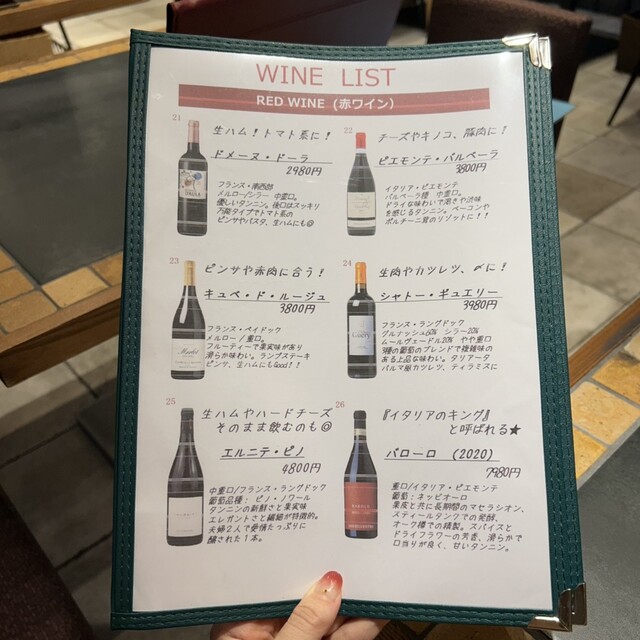 WINE LIST
RED WINE (赤ワイン)
21
生ハム！トマト系に！
ドメーヌ・ドーラ
2980円
フランス・南西部
メルロー/シラー 中重口。
優しいタンニン。後口はスッキリ
万能タイプでトマト系の
ピンサやパスタ、生ハムにも◎
22
チーズやキノコ、豚肉に！
ピエモンテ・バルベーラ
3800円
イタリア・ピエモンテ
バルベーラ種 中重口。
ドライな味わいで渇きや渋味
を感じるタンニン。ベーコンや
ポルチーニ茸のリゾットに！！
23
ピンサや赤肉に合う！
キュベ・ド・ルージュ
3800円
フランス・ペイドック
メルロー/重口。
フルーティーで果実味があり
滑らか味わい。ランプステーキ
ピンツ、生ハムにもGood！！
24
生肉やカツレツ、〆に！
シャトー・ギュエリー
3980円
フランス・ラングドック
グルナッシュ60% シラー20%
ムールヴェードル20% やや重口
3種の葡萄のブレンドで複雑味の
ある上品な味わい。タリアータ
パルマ風カツレツ、ティラミスに
25
生ハムやハードチーズ
そのまま飲むのも◎
エルニテ・ピノ
4800円
中重口/フランス・ラングドック
葡萄品種： ピノ・ノワール
タンニンの新鮮さと果実味
エレガントさと繊細が特徴的。
夫婦2人で愛情たっぷりに
醸された1本。
26
『イタリアのキング』
と呼ばれる★
バローロ (2020)
7980円
重口/イタリア・ピエモンテ
葡萄：ネッビオーロ
果皮と共に長期間のマセラシオン、
スティールタンクでの発酵、
オーク樽での精製。スパイスと
ドライフラワーの芳香、滑らかで
口当りが良く、甘いタンニン。